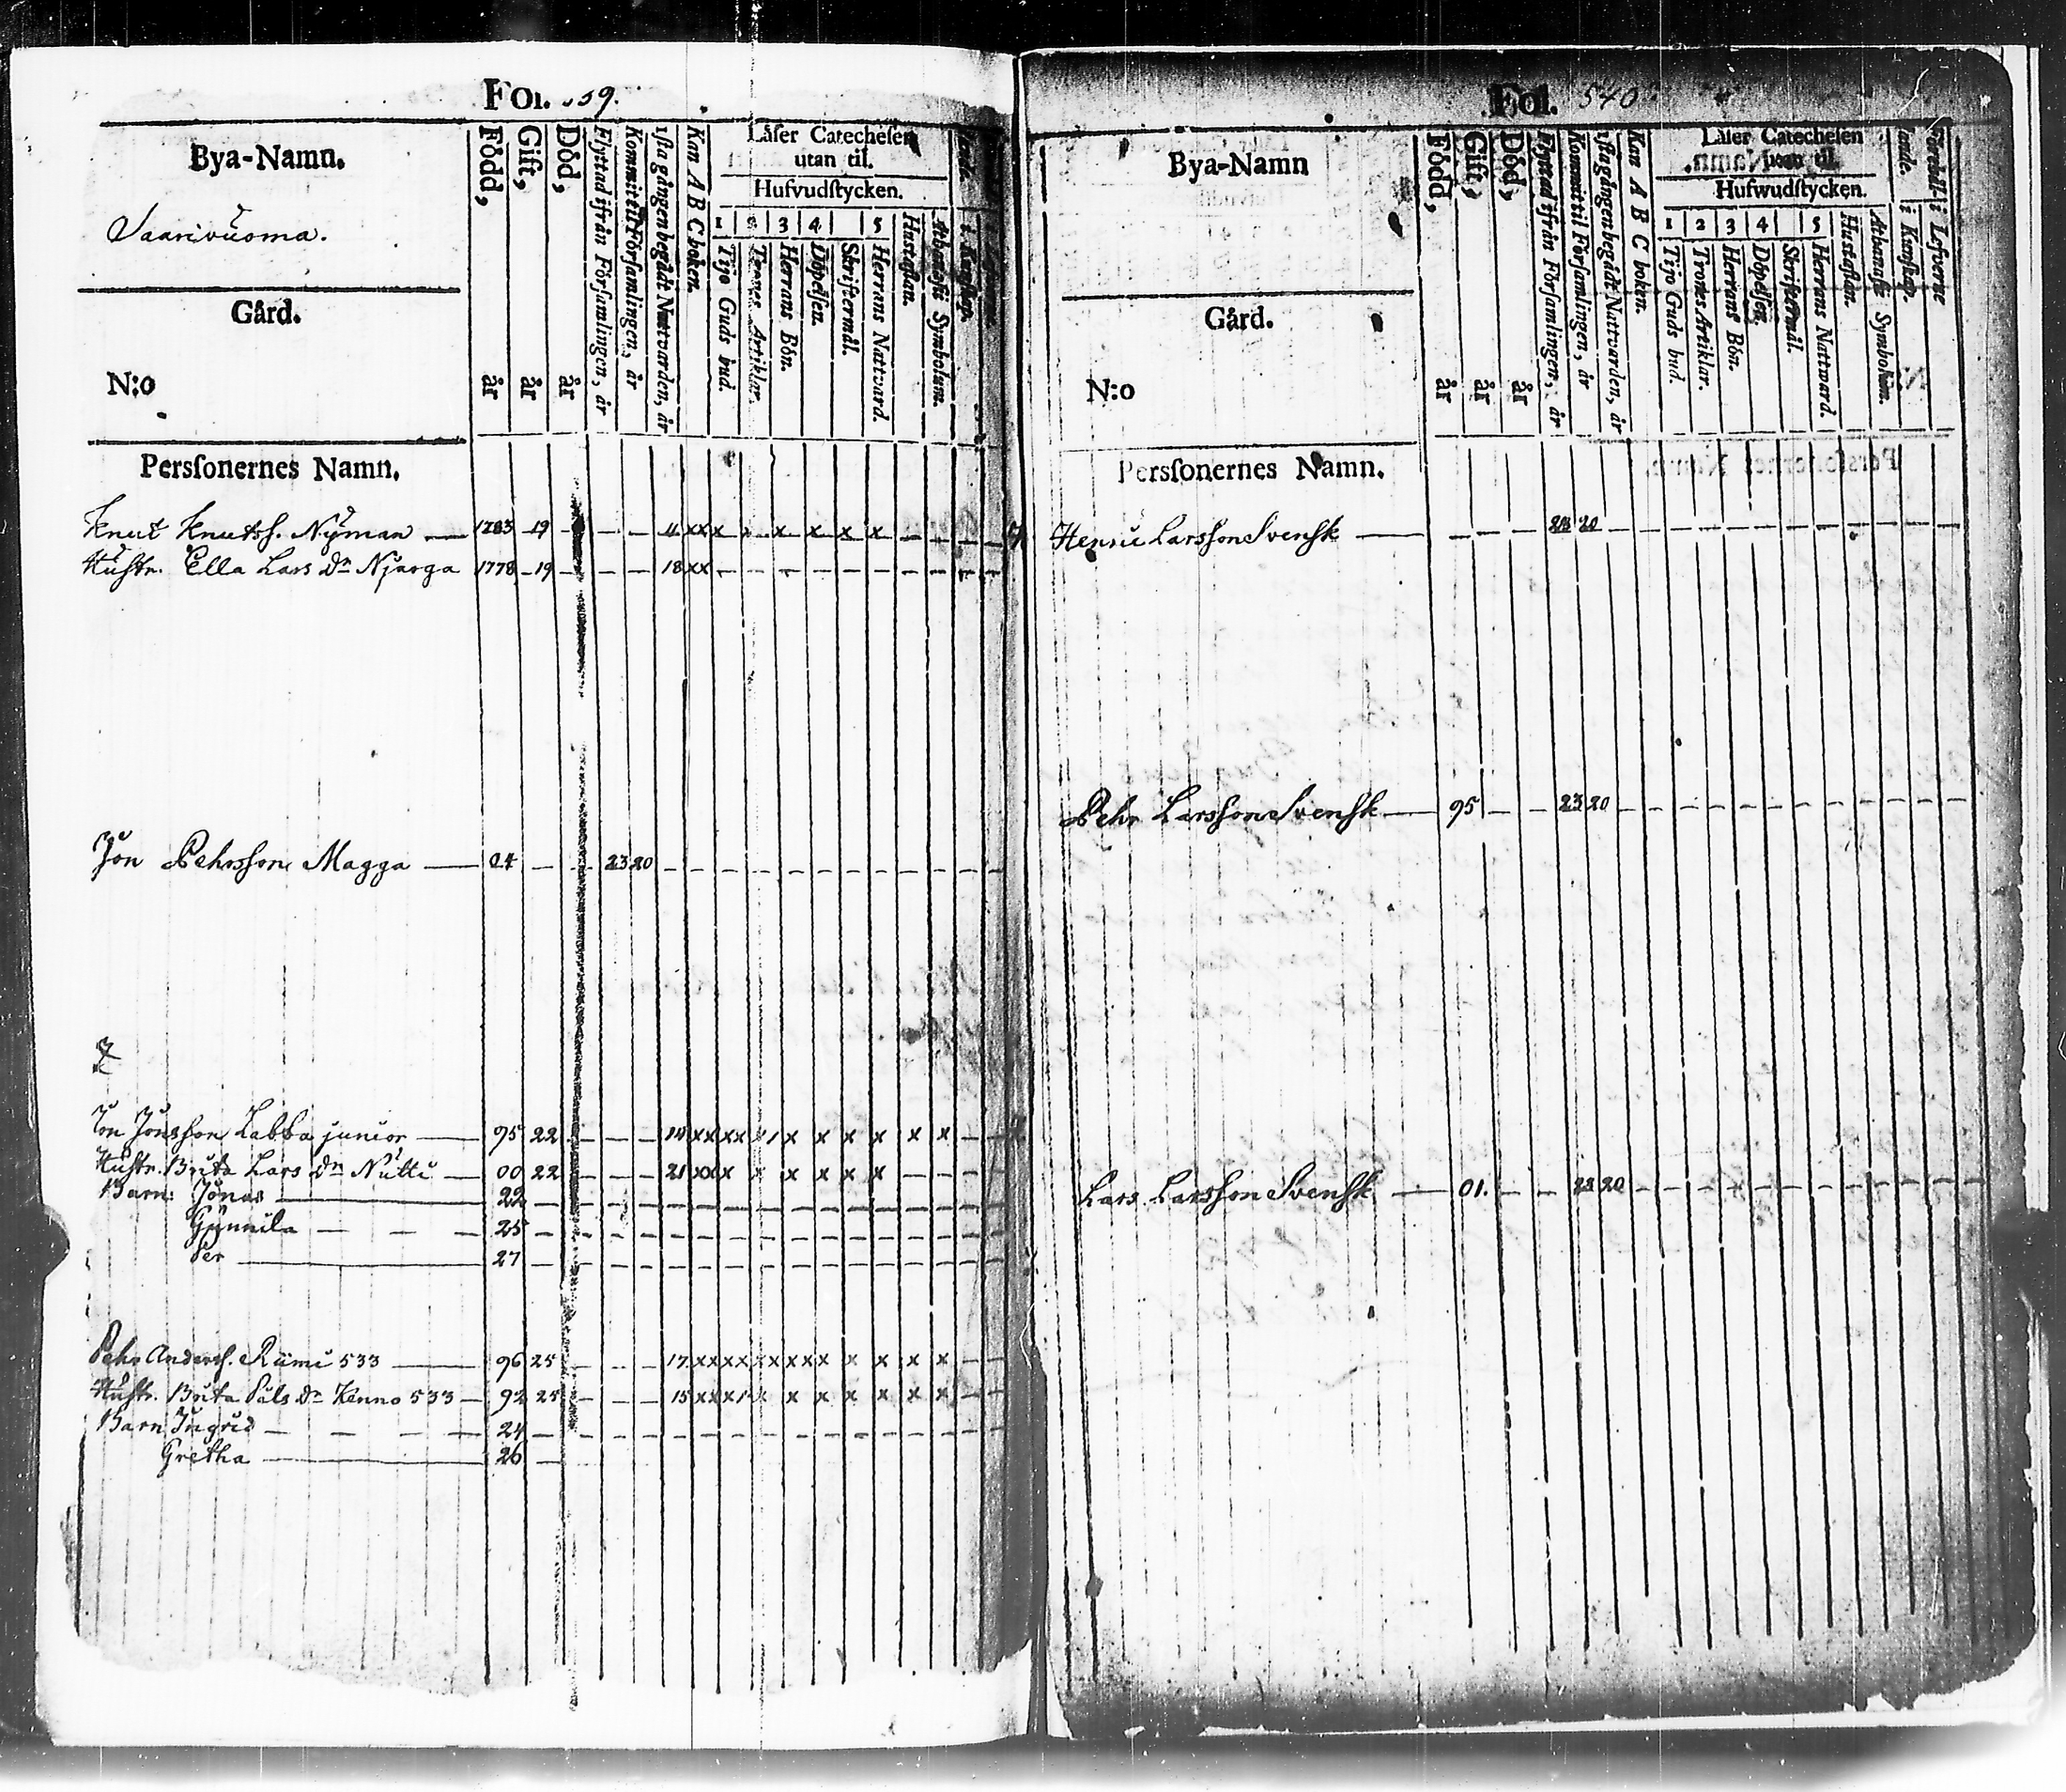 Fol. 539.
Bya-Namn.
Saarivuoma.
Gård.
N:o
Född, år
Gift, år
Död, år
Flyttad ifrån Församlingen, år
Kommit til Församlingen, år
1sta gången begådt Nattvarden, år
Kan A B C boken.
Låser Catechesen utan til.
Hufvudstycken.
1 2 3 4 5
Tijo Guds bud.
Trones Artiklar.
Herrans Bön.
Döpelsen.
Skriftermål.
Herrans Nattvard.
Hustaflan.
Athanasii Symbolum.
Perssonernes Namn.
Knut Knutss. Nyman — 1783 19 — — — 11 xx x x x x x x — —
Hustr. Ella Lars Dr Njarga 1778 19 — — — 18 xx — — — — — — — —
Jon Pehrsson Magga — 04 — — 23 20 — — — — — — — — — —
Jon Jönsson Labba junior — 95 22 — — — 14 xx xx x x x x x x —
Hustr. Brita Lars Dr Nutti — 00 22 — — — 21 xx x x x x x x — —
Barn: Jonas — 22 — — — — — — — — — — —
Gunnila — — — 25 — — — — — — — — — — —
Per — 27 — — — — — — — — — — —
Pehr Anderss. Rümi 533 — 96 25 — — — 17 xx xx xx xx x x x x x — —
Hustr. Brita Påls Dr Kenno 533 — 92 25 — — — 15 xx x x x x x x x x — —
Barn Ingrid — — — — 24 — — — — — — — — — — —
Gretha — 26 —
Fol. 540
Bya-Namn
Gård.
N:o
Född, år
Gift, år
Död, år
Flyttad ifrån Församlingen, år
Kommit til Församlingen, år
1sta gången begådt Nattvarden, år
Kan A B C boken.
Låser Catechesen
Hufwudstycken.
1 2 3 4 5
Tijo Guds bud.
Trones Artiklar.
Herrans Bön.
Döpelsen.
Skriftermål.
Herrans Nattward.
Hustaflan.
Athanasii Symbolum.
i Kunskap.
i Lefverne
Perssonernes Namn.
Henric Larsson Svensk — — — 23 20 — — — — — — — — — —
Pehr Larsson Svensk — 95 — — 23 20 — — — — — — — — — —
Lars Larsson Svensk — 01. — — 23 20 — — — — — — — — — —